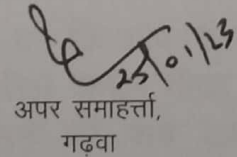 25/01/23
अपर समाहर्त्ता,
गढ़वा